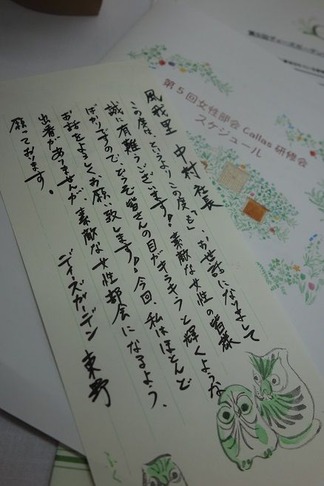 第5回女性部会 Callas 研修会
スケジュール
風我里 中村 社長
この度は、というよりこの度「も」、お世話になりまして
誠に有難うございます!素敵な女性の皆様
ばかりですのでどうぞ皆さんの目がキラキラと輝くような
お話をよろしくお願い致します!今回、私はほとんど
出番がありませんが、素敵な女性部会になるよう、
願っております。
ディーズガーデン 東野